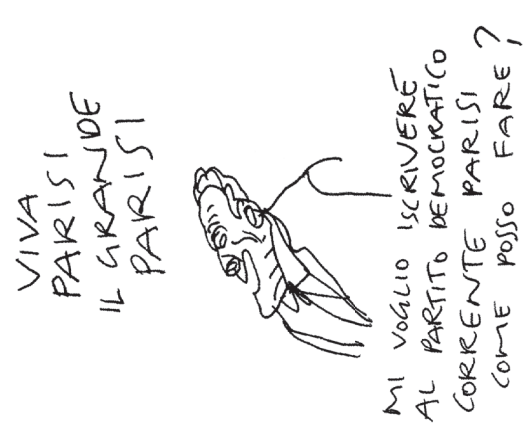 VIVA
PARISI
IL GRANDE
PARISI
MI VOGLIO ISCRIVERE
AL PARTITO DEMOCRATICO
CORRENTE PARISI
COME POSSO FARE?